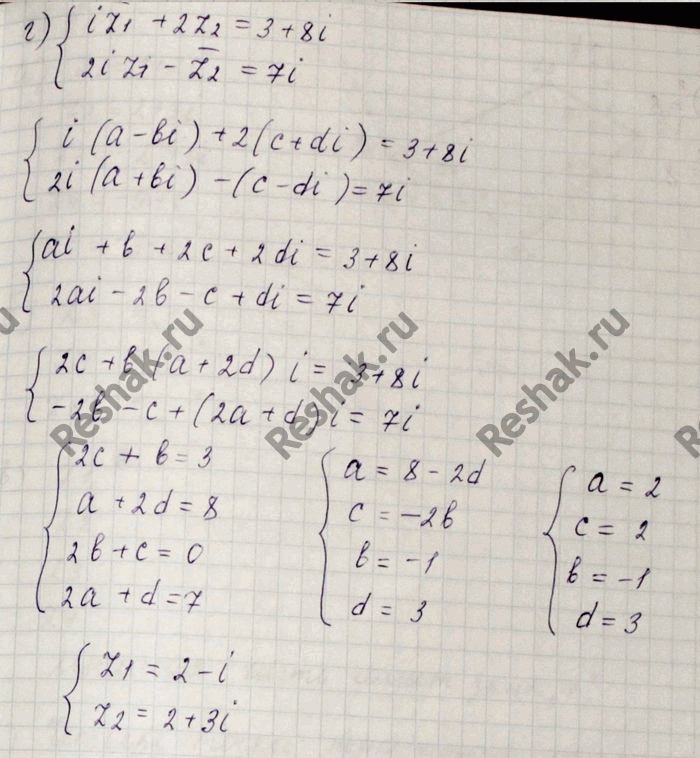 г) { iz̄₁ + 2z₂ = 3 + 8i
2i z₁ - z̄₂ = 7i
{ i(a - bi) + 2(c + di) = 3 + 8i
2i(a + bi) - (c - di) = 7i
{ ai + b + 2c + 2di = 3 + 8i
2ai - 2b - c + di = 7i
{ 2c + b + (a + 2d) i = 3 + 8i
-2b - c + (2a + d) i = 7i
{ 2c + b = 3
a + 2d = 8
2b + c = 0
2a + d = 7
{ a = 8 - 2d
c = -2b
b = -1
d = 3
{ a = 2
c = 2
b = -1
d = 3
{ z₁ = 2 - i
z₂ = 2 + 3i
Reshak.ru
Reshak.ru
Reshak.ru